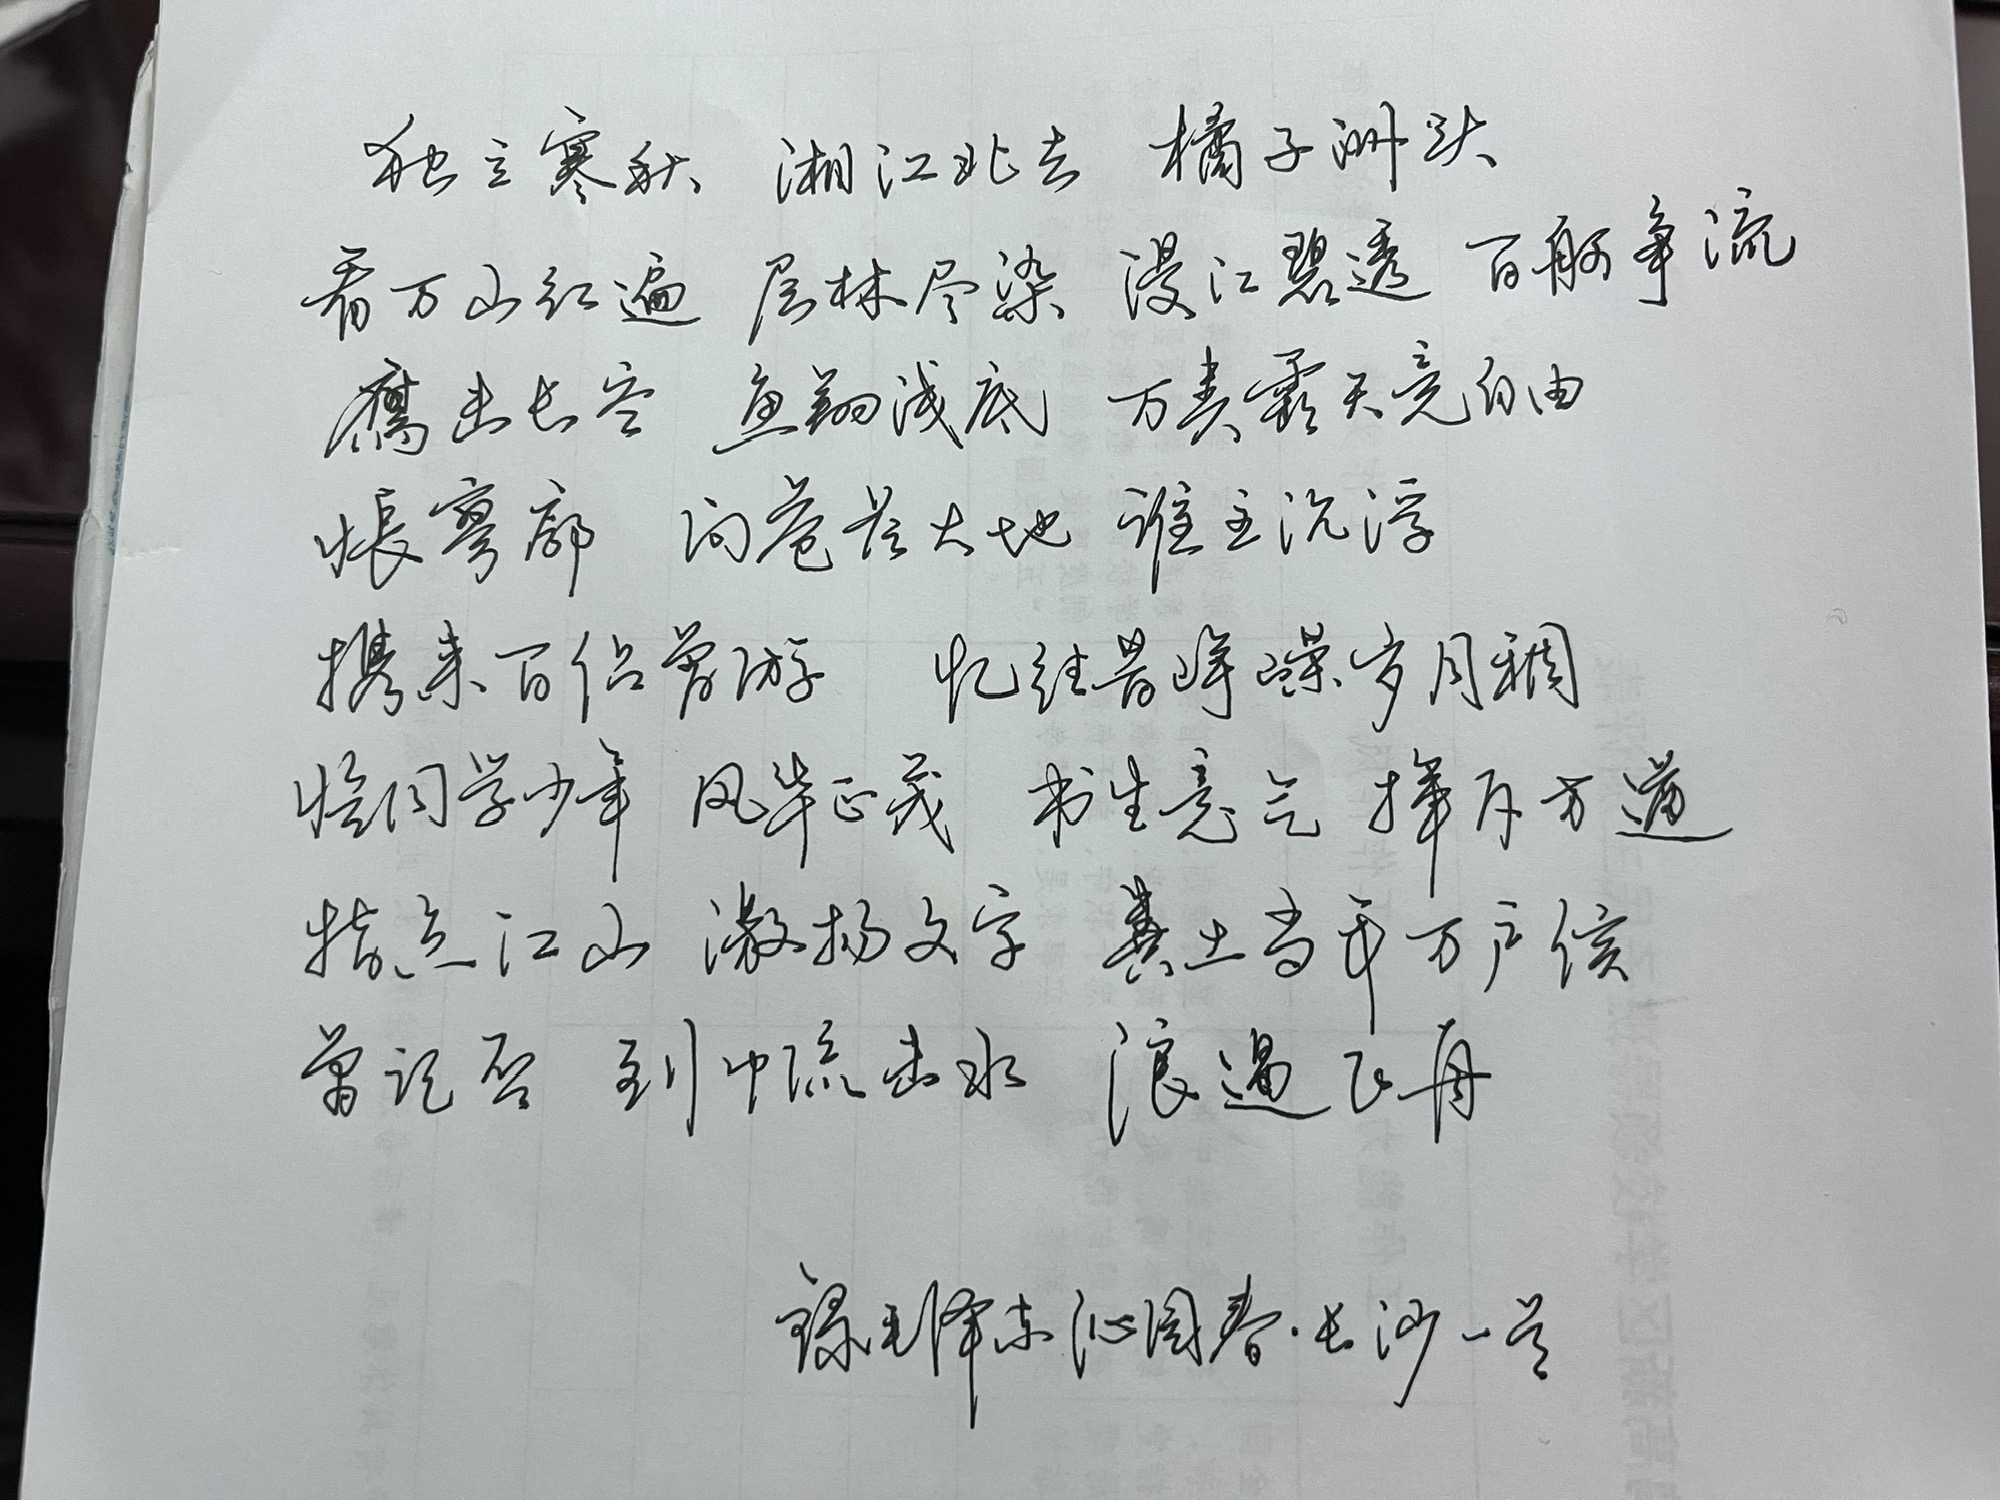 独立寒秋 湘江北去 橘子洲头
看万山红遍 层林尽染 漫江碧透 百舸争流
鹰击长空 鱼翔浅底 万类霜天竞自由
怅寥廓 问苍茫大地 谁主沉浮
携来百侣曾游 忆往昔峥嵘岁月稠
恰同学少年 风华正茂 书生意气 挥斥方遒
指点江山 激扬文字 粪土当年万户侯
曾记否 到中流击水 浪遏飞舟
录毛泽东沁园春·长沙一首